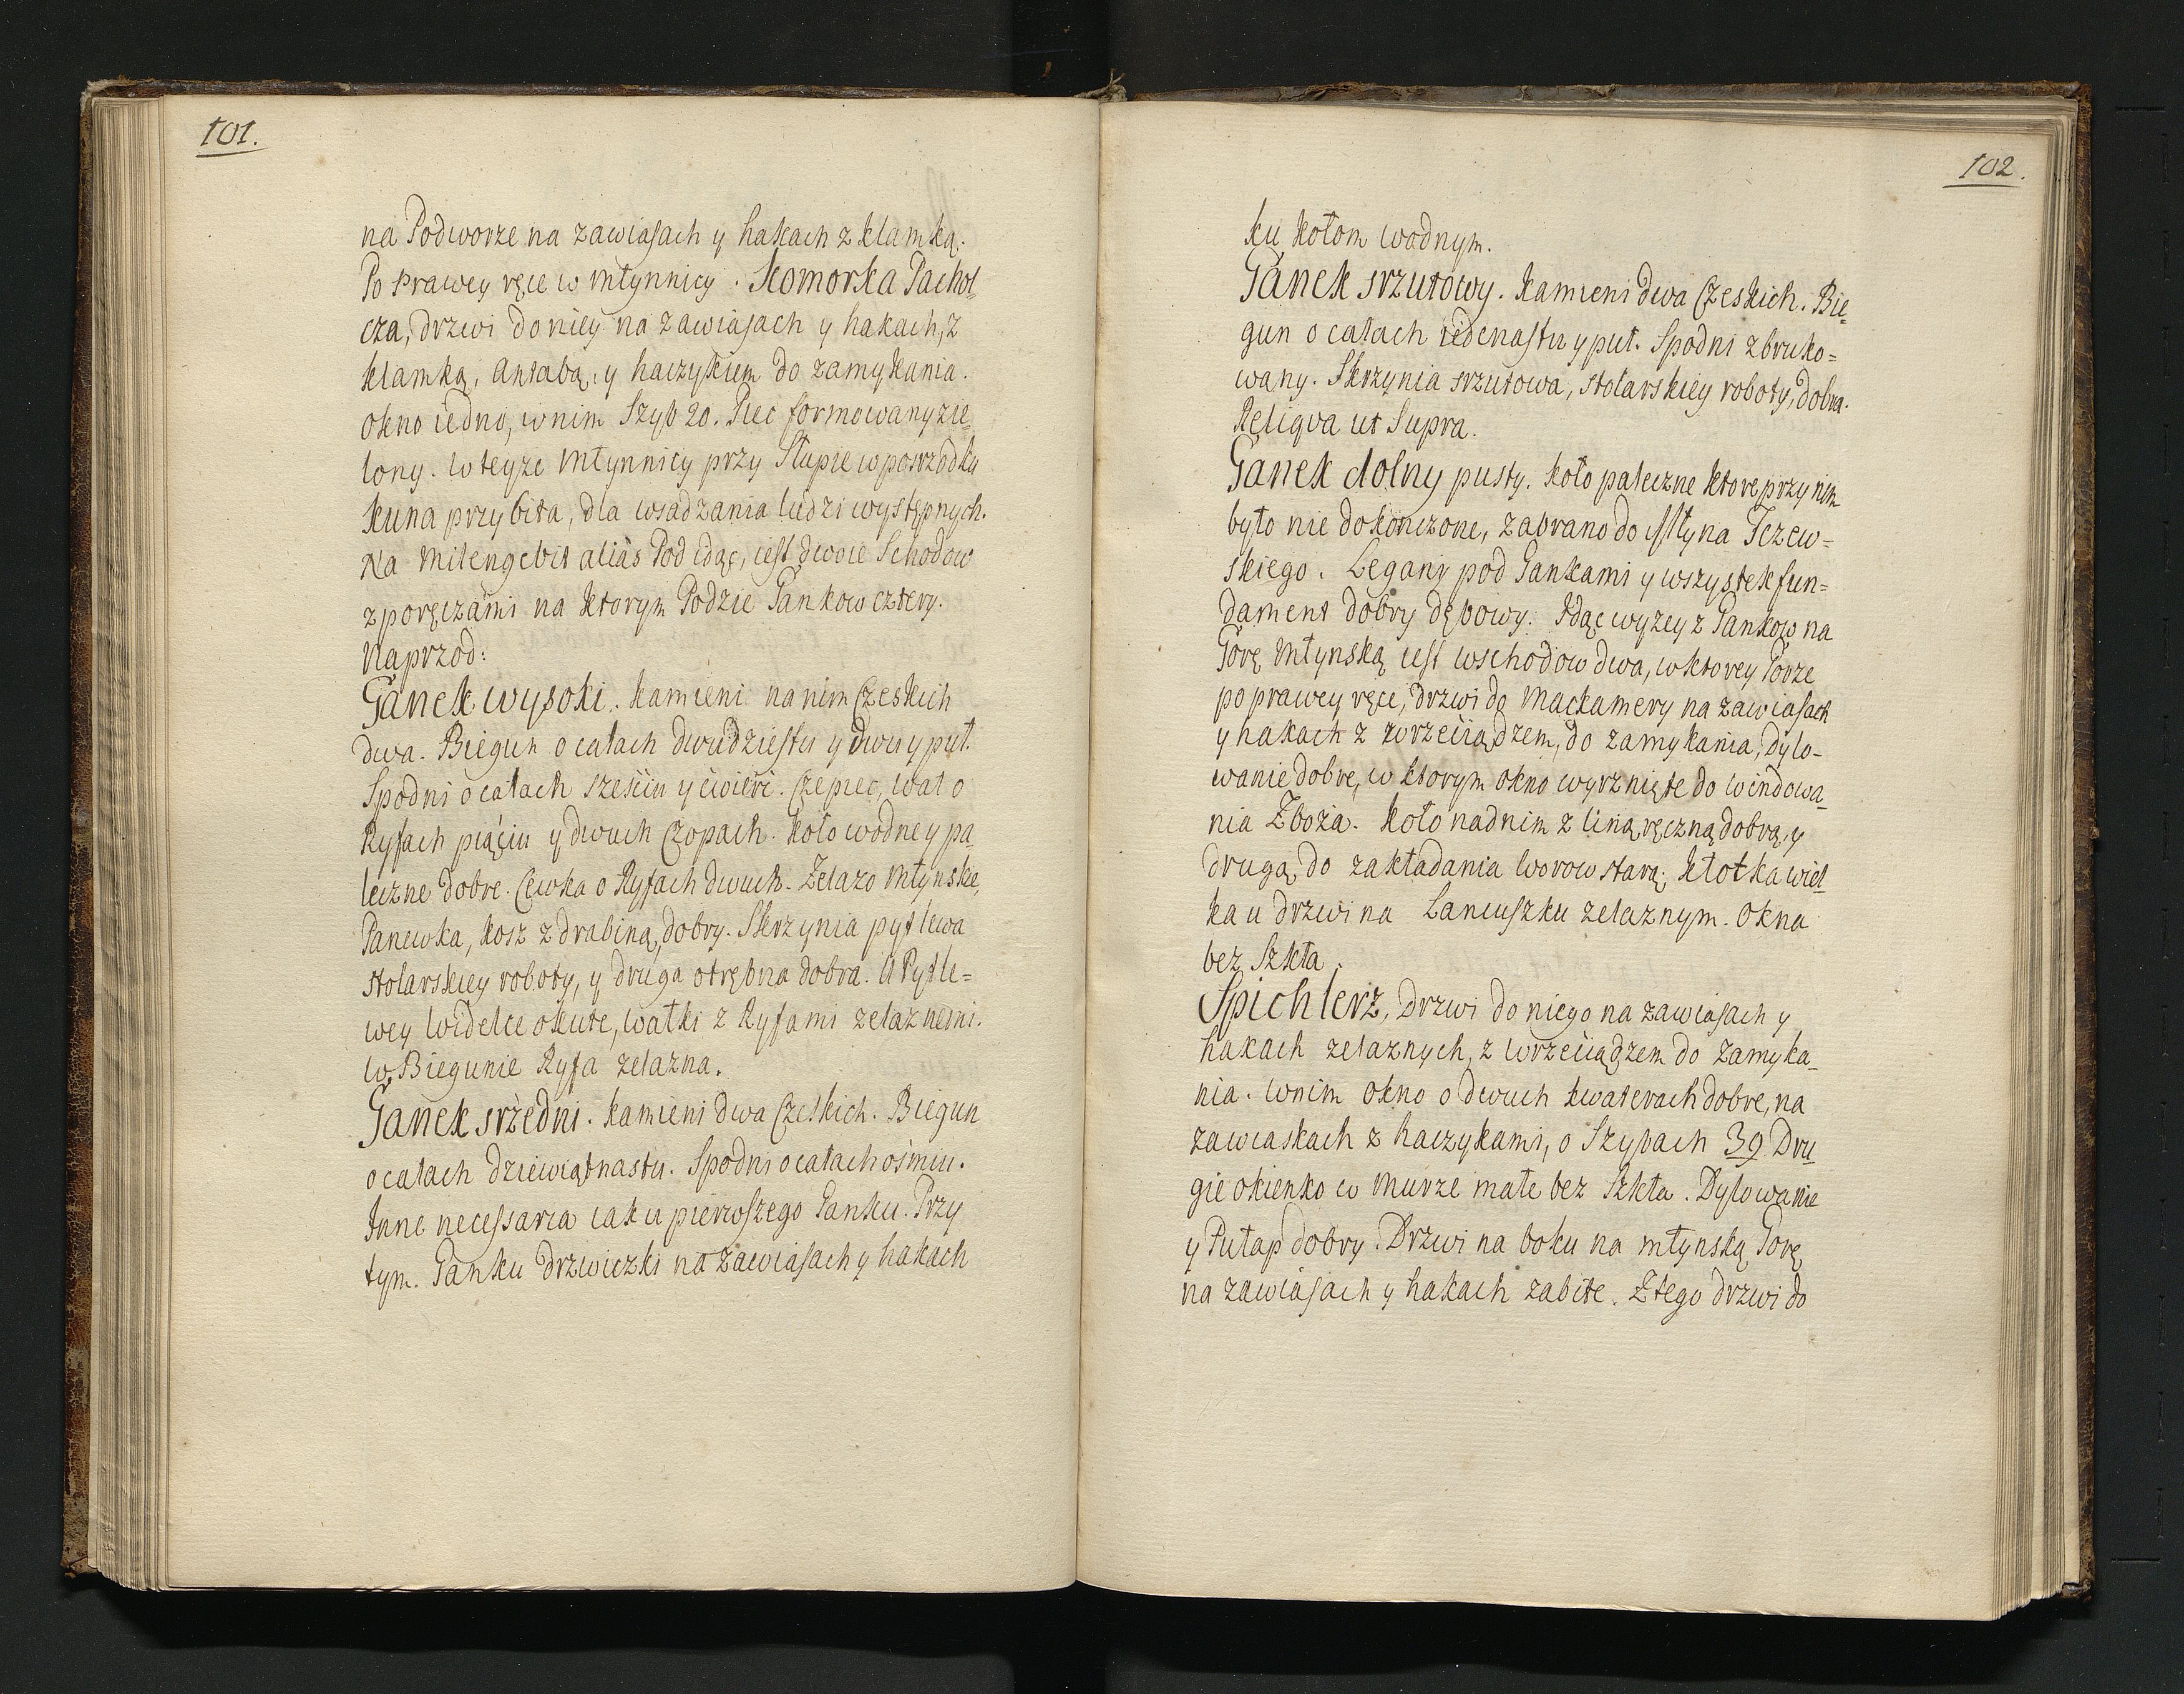 101.
na Podworze na zawiasach y hakach z klamką.
Po prawey ręce w młynnicy. Komorka Pachoł=
cza, drzwi do niey na zawiasach y hakach, z
klamką, antabą, y haczykiem do zamykania.
okno iedno, w nim Szyb 20. Piec formowany zie=
lony. w teyze młynnicy przy Słupie w posrzodku
kuna przybita, dla wsadzania ludzi występnych.
Na Milengebit aliàs Pod idąc, iest dwoie Schodow
z poręczami na ktorym Podzie Gankow cztery.
Naprzod:
Ganek wysoki. kamieni na nim Czeskich
dwa. Biegun o calach dwudziestu y dwu y puł.
Spodni o calach sześciu y ćwierć. Czepiec, wał o
Ryfach piąciu y dwuch Czopach. koło wodne y pa=
leczne dobre. Cewka o Ryfach dwuch. Zelazo Młynskie,
Panewka, kosz z drabiną, dobry. Skrzynia pytlewa
stolarskiey roboty, y druga otrębna dobra. U Pytle=
wey widelce okute, wałki z Ryfami zelaznemi.
w Biegunie Ryfa zelazna.
Ganek srzedni. kamieni dwa Czeskich. Biegun
o calach dziewiątnastu. Spodni o calach ośmiu.
Inne necessaria iak u pierwszego Ganku. Przy
tym. Ganku drzwiczki na zawiasach y hakach
102.
ku kołom wodnym.
Ganek srzutowy. kamieni dwa Czeskich. Bie=
gun o calach iedenastu y puł. Spodni zbruko=
wany. Skrzynia srzutowa, stolarskiey roboty, dobra.
Reliqva ut Supra.
Ganek dolny pusty. koło paleczne ktore przy nim
było nie dokończone, zabrano do Młyna Tczew=
skiego. Legary pod Gankami y wszystek fun=
dament dobry dębowy. Idąc wyzey z Gankow na
Gorę Młynską iest wschodow dwa, w ktorey Gorze
po prawey ręce, drzwi do Mackamery na zawiasach
y hakach z wrzeciądzem, do zamykania, dylo=
wanie dobre, w ktorym okno wyrznięte do windowa=
nia Zboża. Koło nad nim z liną ręczną dobrą, y
drugą do zakładania worow starą; kłotka wiel=
ka u drzwi na Lancuszku zelaznym. Okna
bez Szkła.
Spichlerz, Drzwi do niego na zawiasach y
hakach zelaznych, z wrzeciądzem do zamyka=
nia. w nim okno o dwuch kwaterach dobre, na
zawiaskach z haczykami, o Szybach 39. Dru=
gie okienko w murze małe bez Szkła. Dylowanie
y Pułap dobry. Drzwi na boku na młynską Gorę
na zawiasach y hakach zabite. Z tego drzwi do